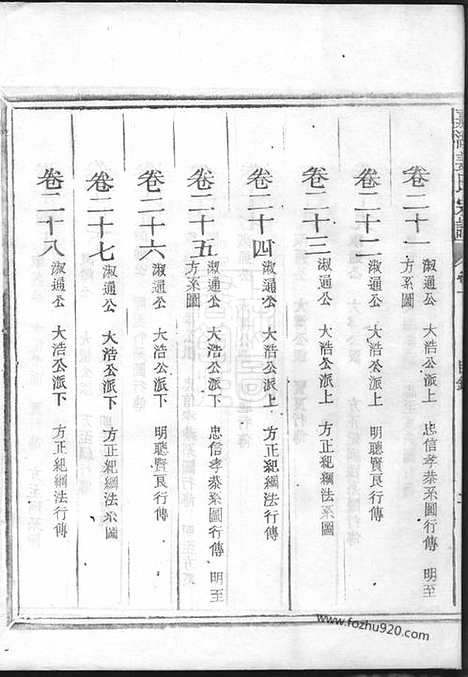 卷二十一 淑通公 大浩公派上 忠信孝恭系圖行傳 明至
方系圖
卷二十二 淑通公 大浩公派上 明聰賢良行傳
卷二十三 淑通公 大浩公派上 方正紀綱法系圖
卷二十四 淑通公 大浩公派上 方正紀綱法行傳
卷二十五 淑通公 大浩公派下 忠信孝恭系圖行傳 明至
方系圖
卷二十六 淑通公 大浩公派下 明聰賢良行傳
卷二十七 淑通公 大浩公派下 方正紀綱法系圖
卷二十八 淑通公 大浩公派下 方正紀綱法行傳
www.fozhu920.com